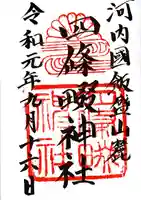 河内國飯盛山麓
四條畷神社
令和元年九月十六日